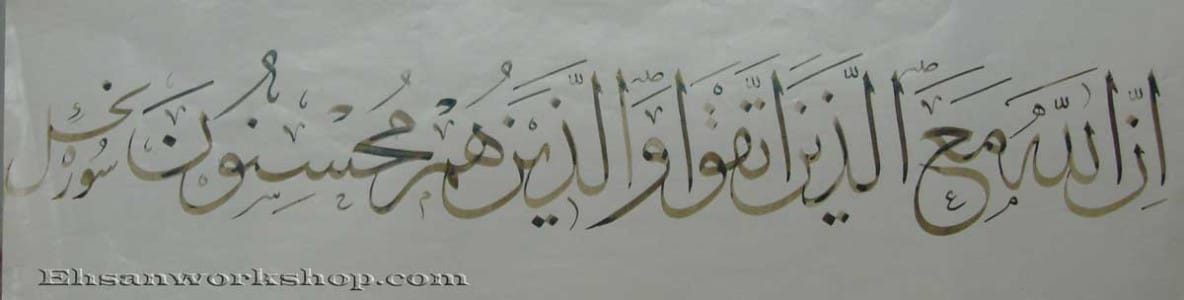 اِنَّ اللّٰهَ مَعَ الَّذِينَ اتَّقَوْا وَالَّذِينَ هُمْ مُحْسِنُونَ سورة نحل
Ehsanworkshop.com